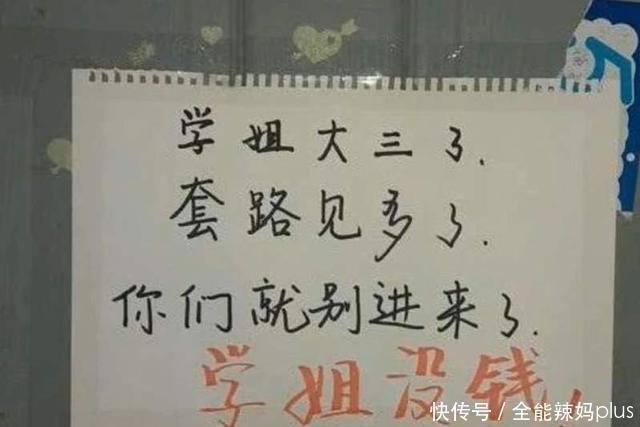 学姐大三了.
套路见多了.
你们就别进来了.
学姐没钱!
快传号 / 全能辣妈plus